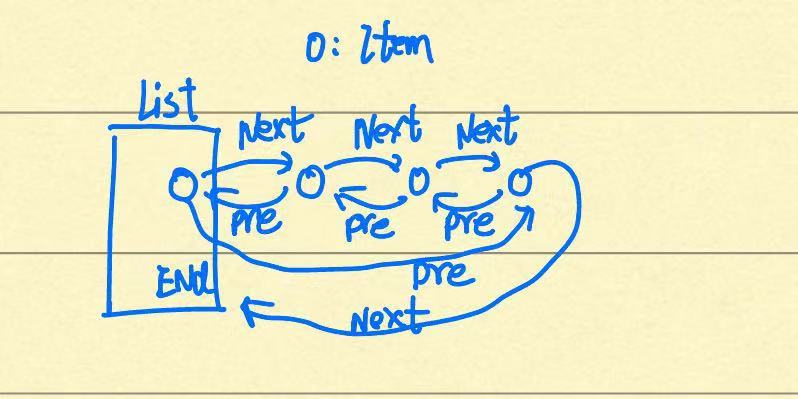 O: Item
List
Next Next Next
Pre Pre Pre
Pre
END
Next